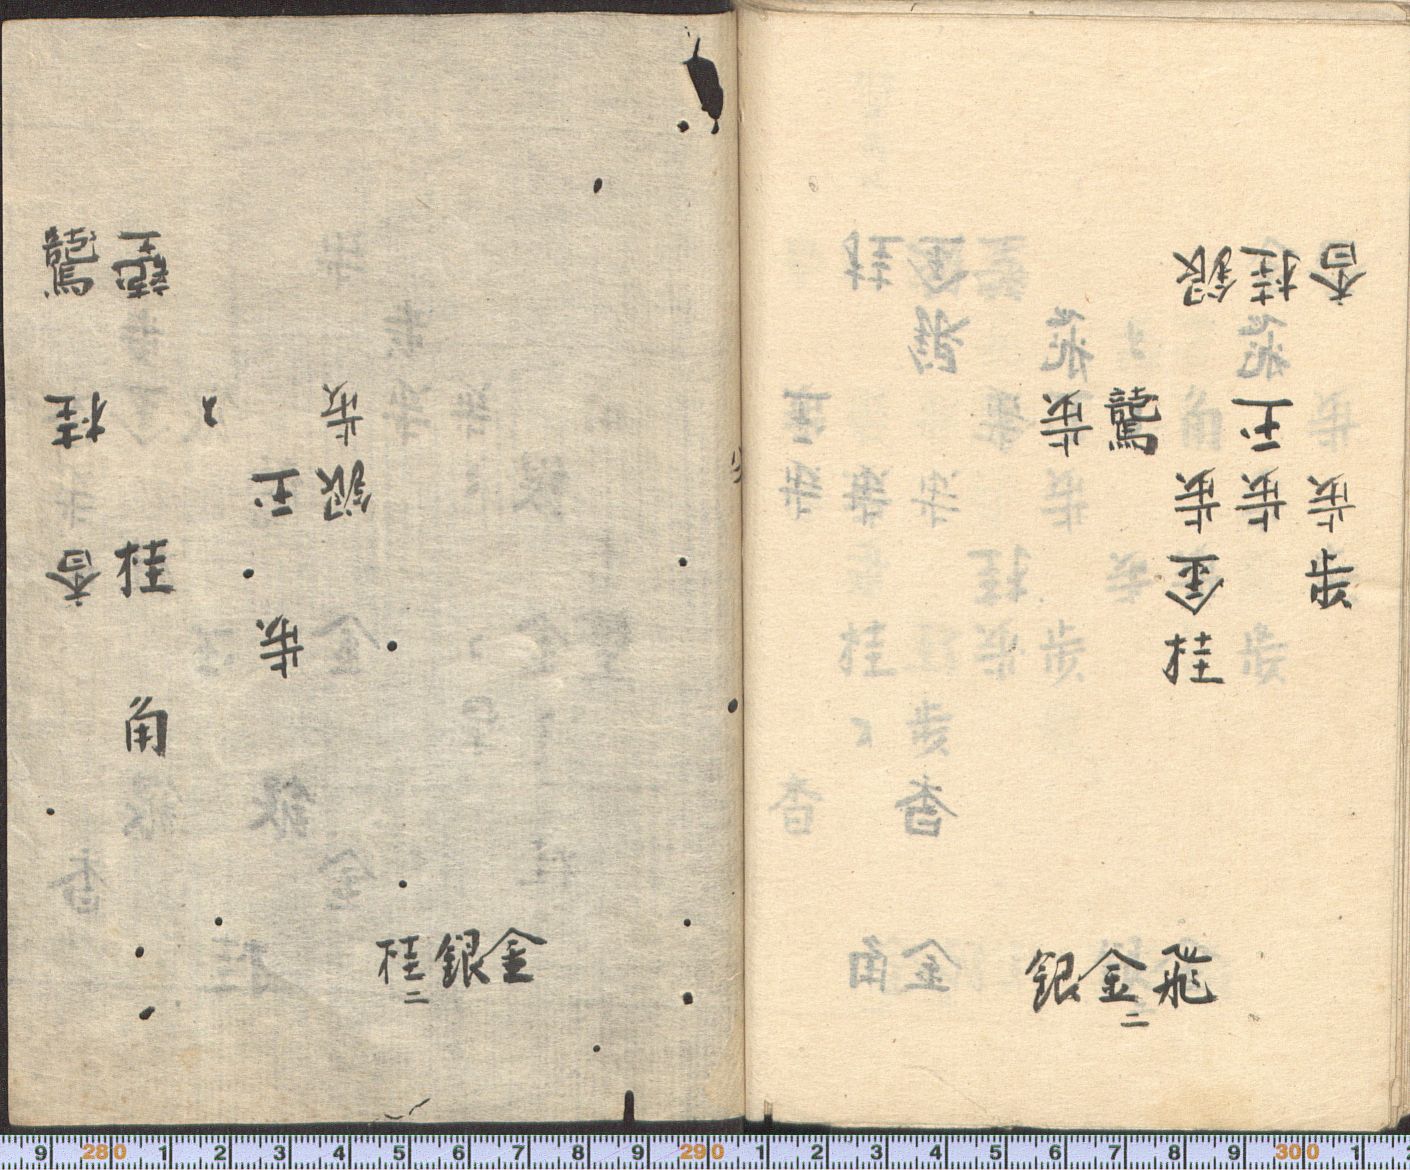 香歩歩
桂玉歩
銀歩金桂
龍馬
歩
飛金二銀
歩銀
玉歩
と
龍王桂角
龍馬桂香
金銀桂二
9 280 1 2 3 4 5 6 7 8 9 290 1 2 3 4 5 6 7 8 9 300 1 2